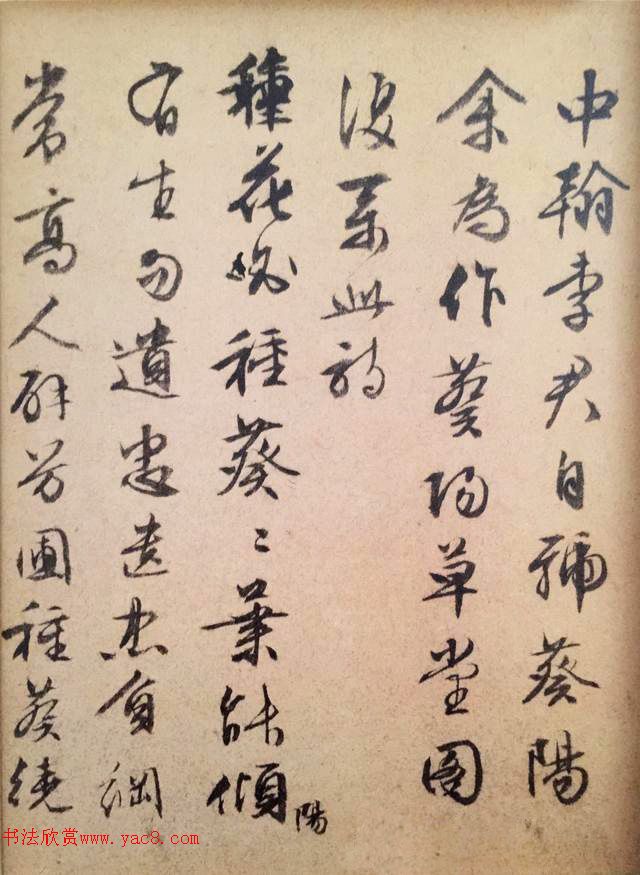 中翰李君自號葵陽
余為作葵陽草堂圖
復系此詩
種花必種葵葵〻葉能傾陽
有生勿遺忠遺忠負綱
常高人辟芳圃種葵繞
书法欣赏www.yac8.com